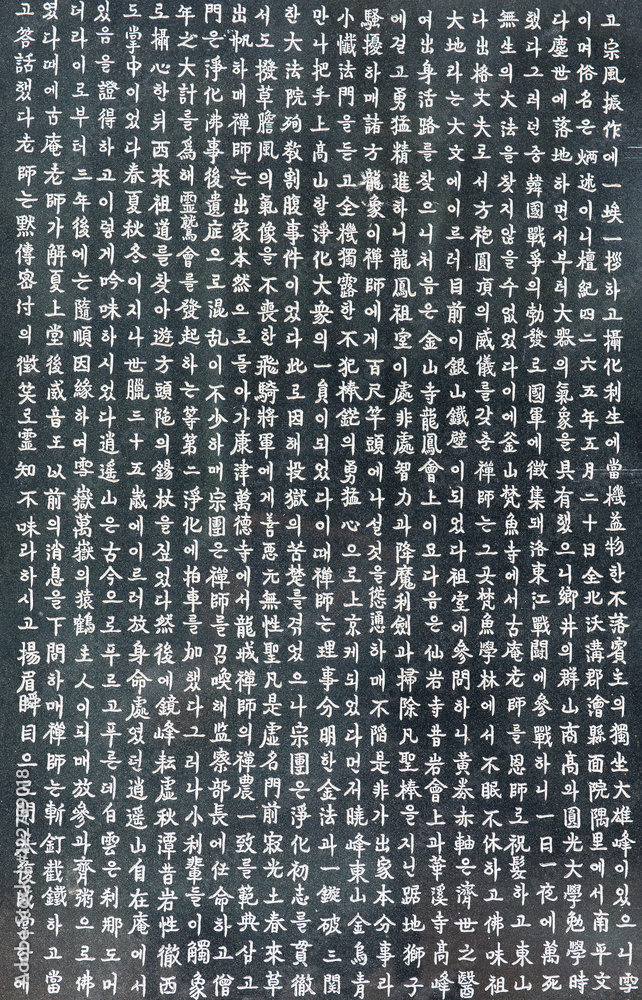 고宗風振作에一埃一拶하고攝化利生에當機益物한不落賓主의獨坐大雄峰이있으니雪
이며俗名은炳述이니檀紀四二六五年五月二十日全北沃溝郡澮縣面院隅里에서南平文
다塵世에落地하면서부터大器의氣象을具有했으니鄕井의群山商高와圓光大學勉學時
했다그러던중韓國戰爭의勃發로國軍에徵集돼洛東江戰鬪에參戰하니一日一夜에萬死
無生의大法을찾지않을수없었다이에釜山梵魚寺에서古庵老師를恩師로祝髮하고東山
다出格丈夫로서方袍圓頂의威儀를갖춘禪師는그곳梵魚學林에서不眠不休하고佛味祖
大地라는大文에이르러目前이銀山鐵壁이되었다祖室에參問하니黃券赤軸은濟世之醫
여出身活路를찾으니처음은金山寺龍鳳會上이요다음은仙岩寺昔岩會上과華溪寺高峰
에걸고勇猛精進하니龍鳳祖室이處非處智力과降魔利劍과掃除凡聖棒을지닌踞地獅子
騷擾하매諸方龍象이禪師에게百尺竿頭에나설것을慫慂하매不陷是非가出家本分事라
小懺法門을듣고全機獨露한不犯棒鋩의勇猛心으로上京케되었다먼저曉峰東山金烏靑
만나把手上高山할淨化大衆의一員이되었다이때禪師는理事分明한金法과一鏃破三關
한大法院殉敎割腹事件이었다此로因해投獄의苦楚를겪었으나宗團은淨化初志를貫徹
서도撥草瞻風의氣像을不喪한飛騎將軍에게善惡元無性聖凡是虛名門前寂光土春來草
出帆하매禪師는出家本然으로돌아가康津萬德寺에서龍城禪師의禪農一致를範典삼고
門은淨化佛事後遺症으로混乱이不少하매宗團은禪師를召喚해監察部長에任命하고僧
年之大計를爲해靈鷲會를發起하는等第二淨化에拍車를加했다그러나小利輩들이觸象
로攝心한뒤西來祖道를찾아遊方頭陀의錫杖을짚었다然後에鏡峰耘虛秋潭昔岩性徹西
도掌中이었다春夏秋冬이지나世臘三十五歲에이르러放身命處였던逍遙山自在庵에서
있음을證得하고이렇게吟味하시었다逍遙山은古今으로푸르고푸른데白雲은刹那도머
더라이로부터三年後에는隨順因緣하여雪嶽萬嶽의猿鶴主人이되매放參과齊粥으로佛
였다때에古庵老師가解夏上堂後威音王以前의消息을下問하매禪師는斬釘截鐵하고當
고答話했다老師는默傳密付의微笑로靈知不昧라하시고揚眉瞬目으로